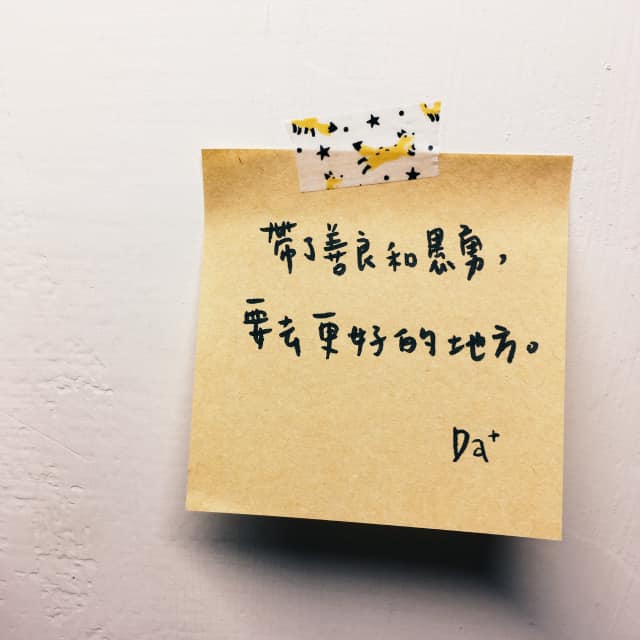 帶了善良和愚勇，
要去更好的地方。
Da+